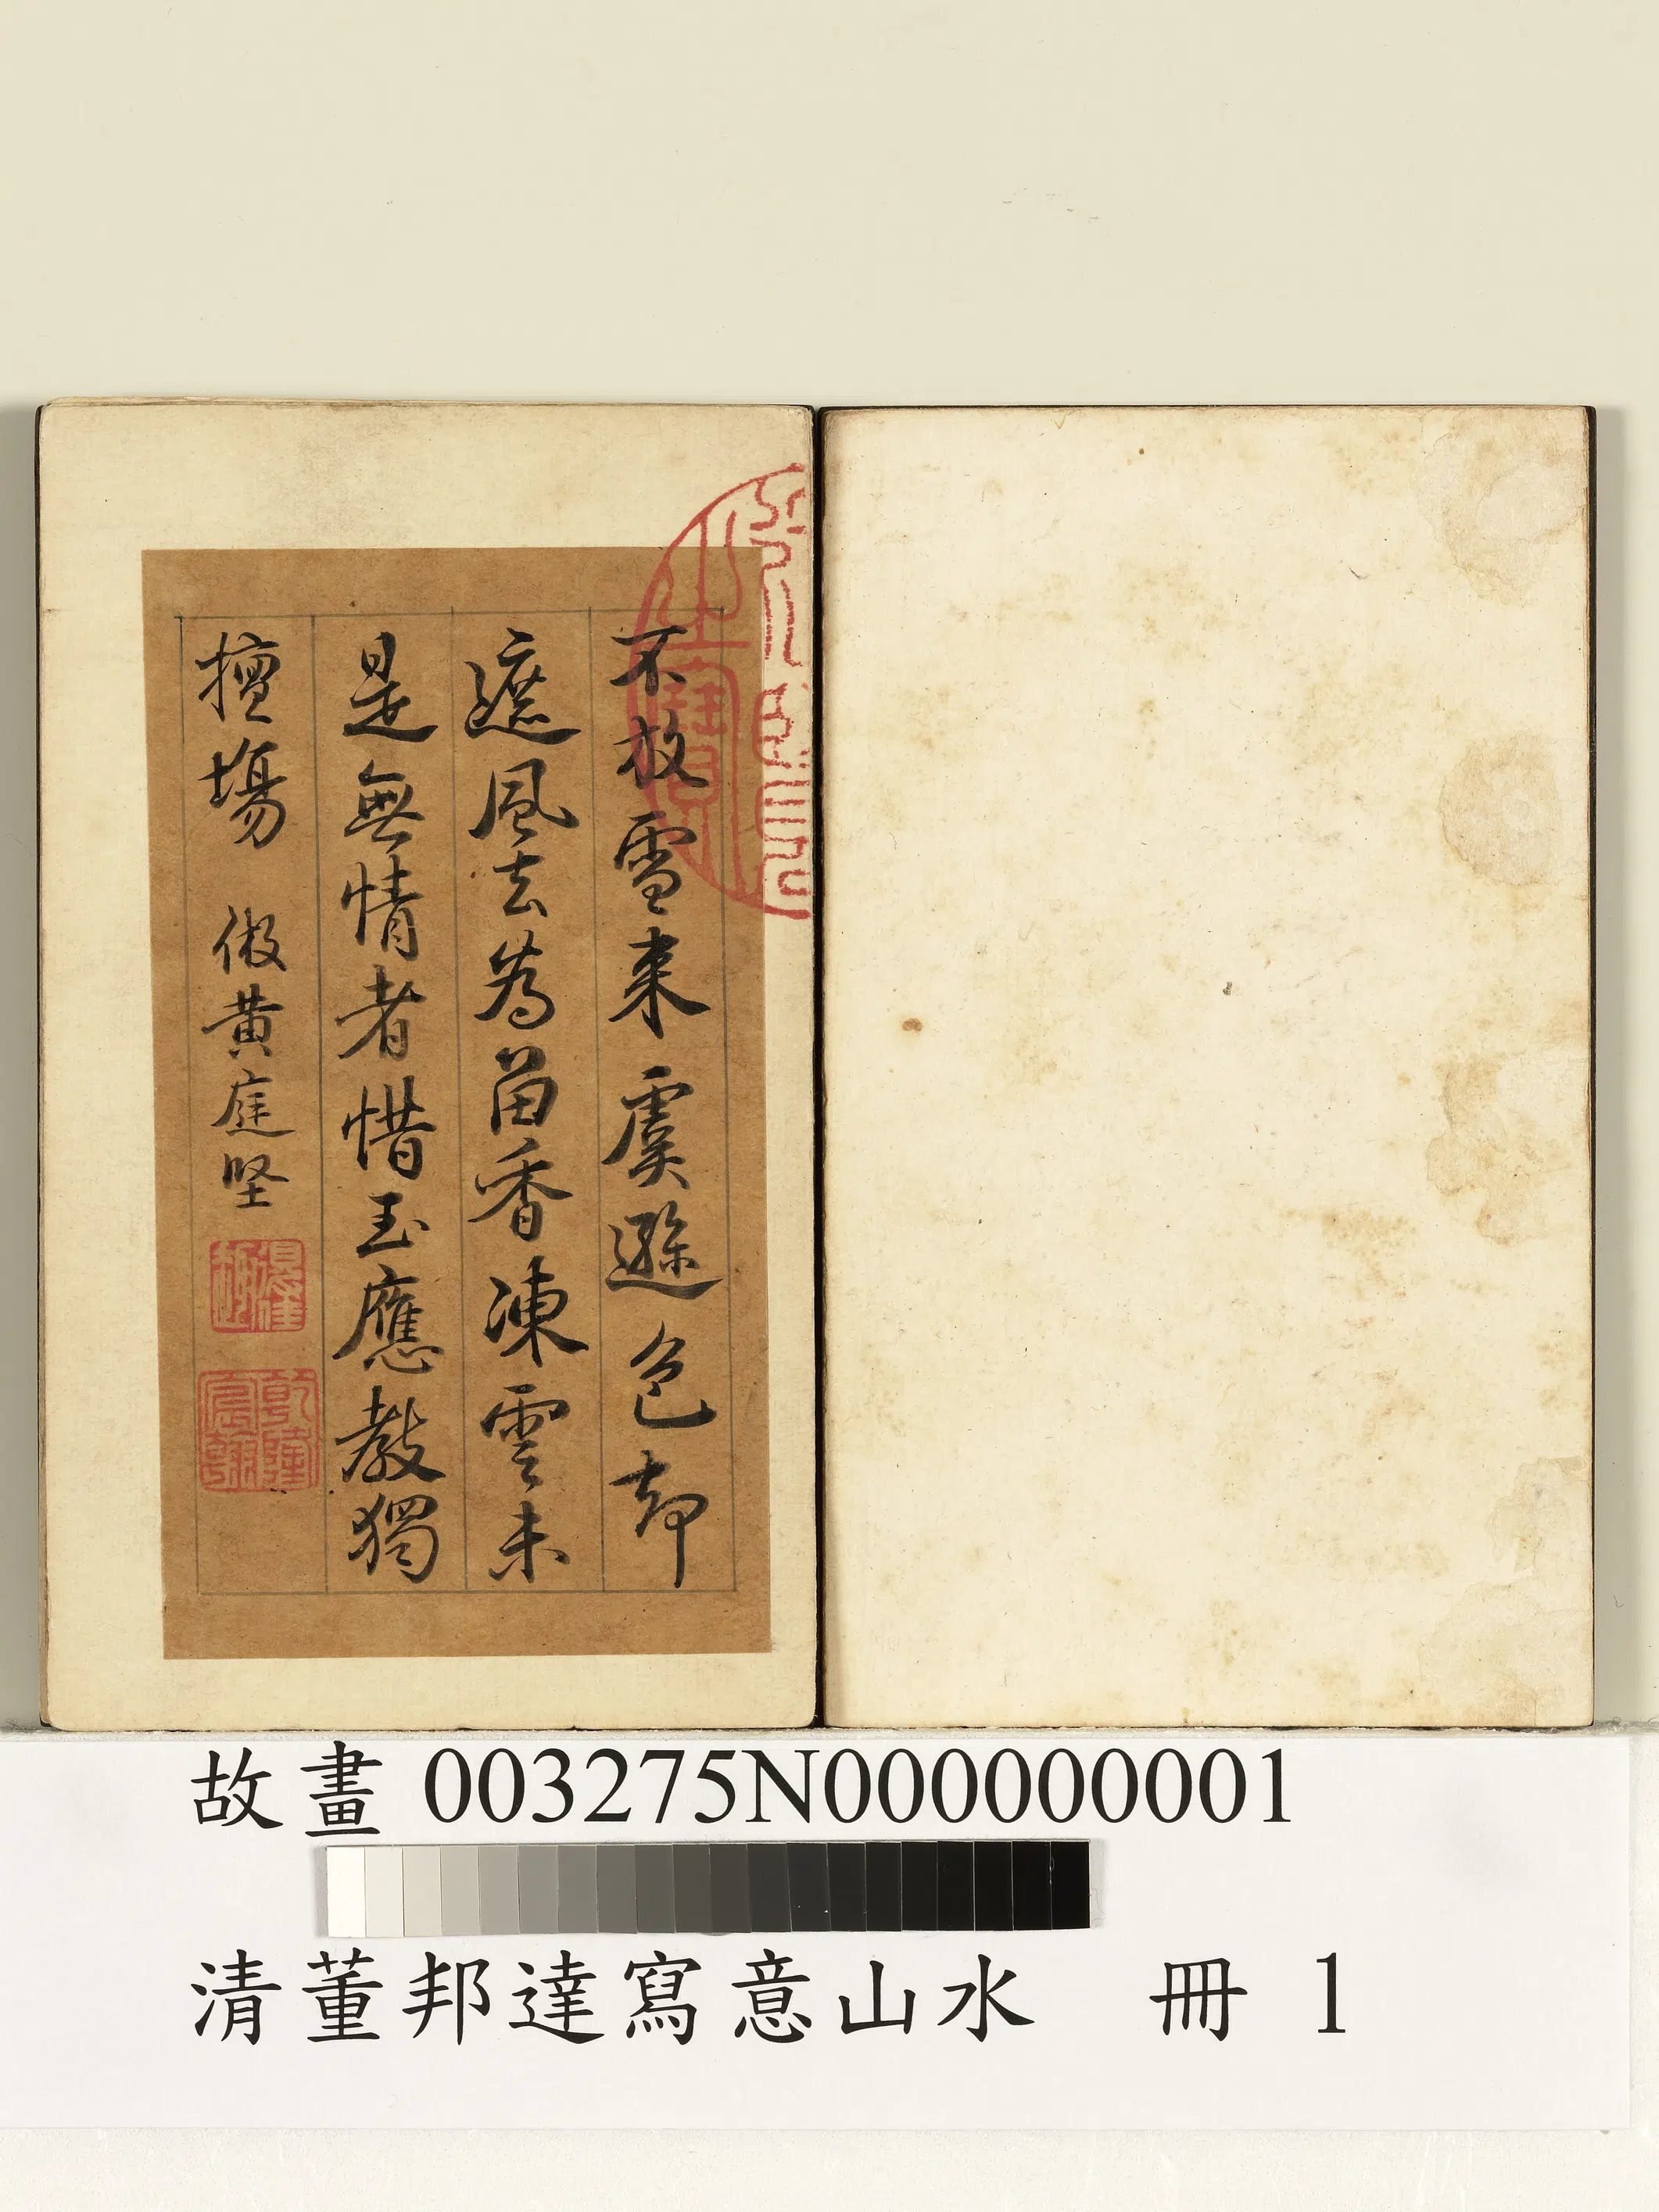 不放雪來虞遜色却
遮風去為留香凍雲未
是無情者惜玉應教獨
擅場 倣黃庭堅
乾隆宸翰
故畫 003275N000000001
清董邦達寫意山水 冊 1